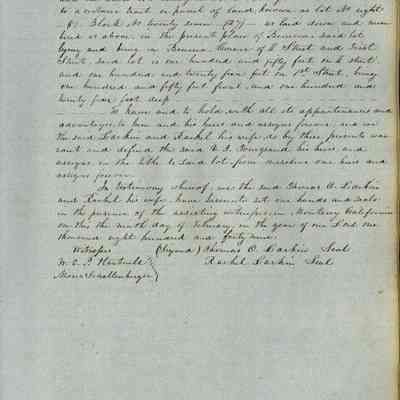 to a certain tract or parcel of land, known as lot No eight
(8) Block No twenty seven (27) as laid down and num
bered as above, in the present plan of Benicia said lot
lying and being in Benicia Corner of K Street and First
Street, said lot is one hundred and fifty feet on K Street,
and one hundred and twenty five feet on 1st Street, being
one hundred and fifty feet front, and one hundred and
twenty five feet deep
To have and to hold with all its appurtenances and
advantages, to him and his heirs and assigns forever, and we
the said Larkin and Rachel his wife, do by these presents war
rant and defend the said his heirs and
assigns, in the title to said lot from ourselves our heirs and
assigns forever.
In testimony whereof, we the said Thomas O. Larkin
and Rachel his wife, have hereunto set our hands and seals
in the presence of the assisting witnesses in Monterey California
on this the ninth day of February in the year of our Lord one
thousand eight hundred and forty nine.
Witnesses (Signed) Thomas O. Larkin Seal
W. E. P. Hartnell Rachel Larkin Seal
Moses Schallenberger